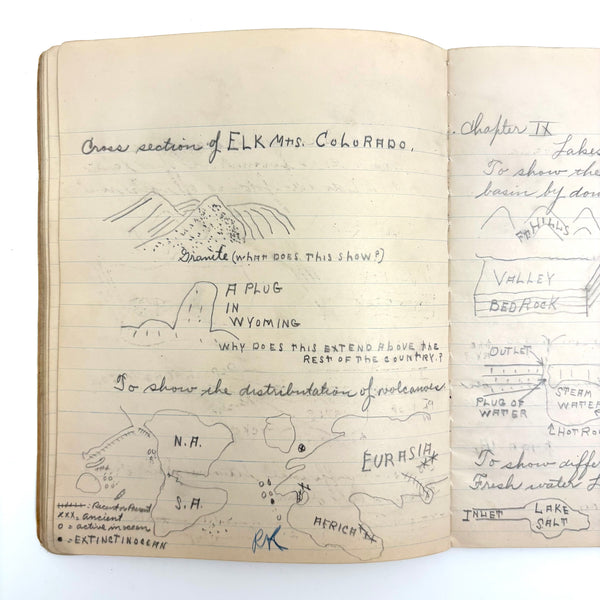 Cross section of ELK Mts. COLORADO.
Granite (WHAT DOES THIS SHOW?)
A PLUG
IN
WYOMING
WHY DOES THIS EXTEND ABOVE THE
REST OF THE COUNTRY.?
To show the distributation of volcanoes.
N.A.
EURASIA
S.A.
AFRICA
Recent or Present
XXX = ancient
O = active in ocean
● = EXTINCT IN OCEAN
RK
Chapter IX
Lakes
To show the
basin by dow
HILLS
VALLEY
BEDROCK
OUTLET
PLUG OF
WATER
STEAM
WATER
HOT RO
To show diffe
Fresh water L
INLET
LAKE
SALT